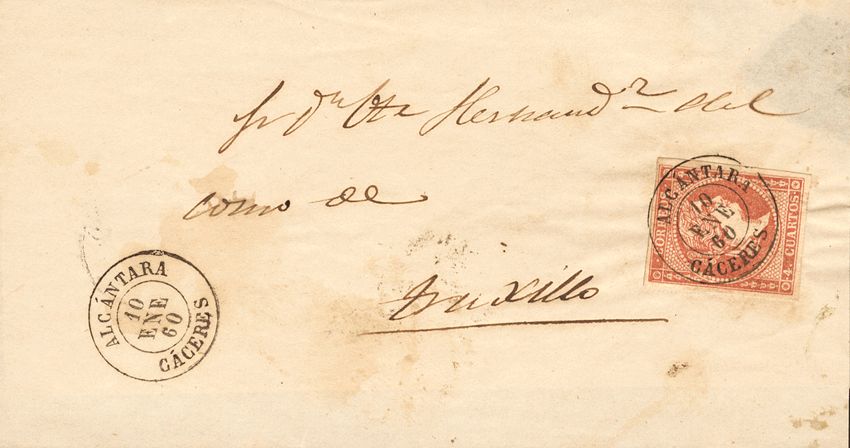 Sr Dn Hernandz del
como de
truxillo
ALCÁNTARA
10
ENE
60
CÁCERES
4 CUARTOS
ALCÁNTARA
10
ENE
60
CÁCERES